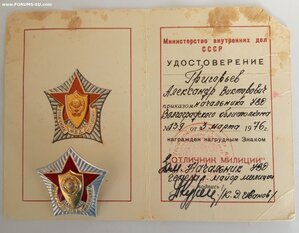 www.FORUMS-SU.com
Министерство внутренних дел
СССР
УДОСТОВЕРЕНИЕ
Григорьев
Александр Викторович
приказом начальника УВД
Волгоградского облисполкома
№ 139 от 3 марта 1976 г.
награжден нагрудным Знаком
"ОТЛИЧНИК МИЛИЦИИ"
Начальник УВД
генерал-майор милиции
К. Д. Иванов